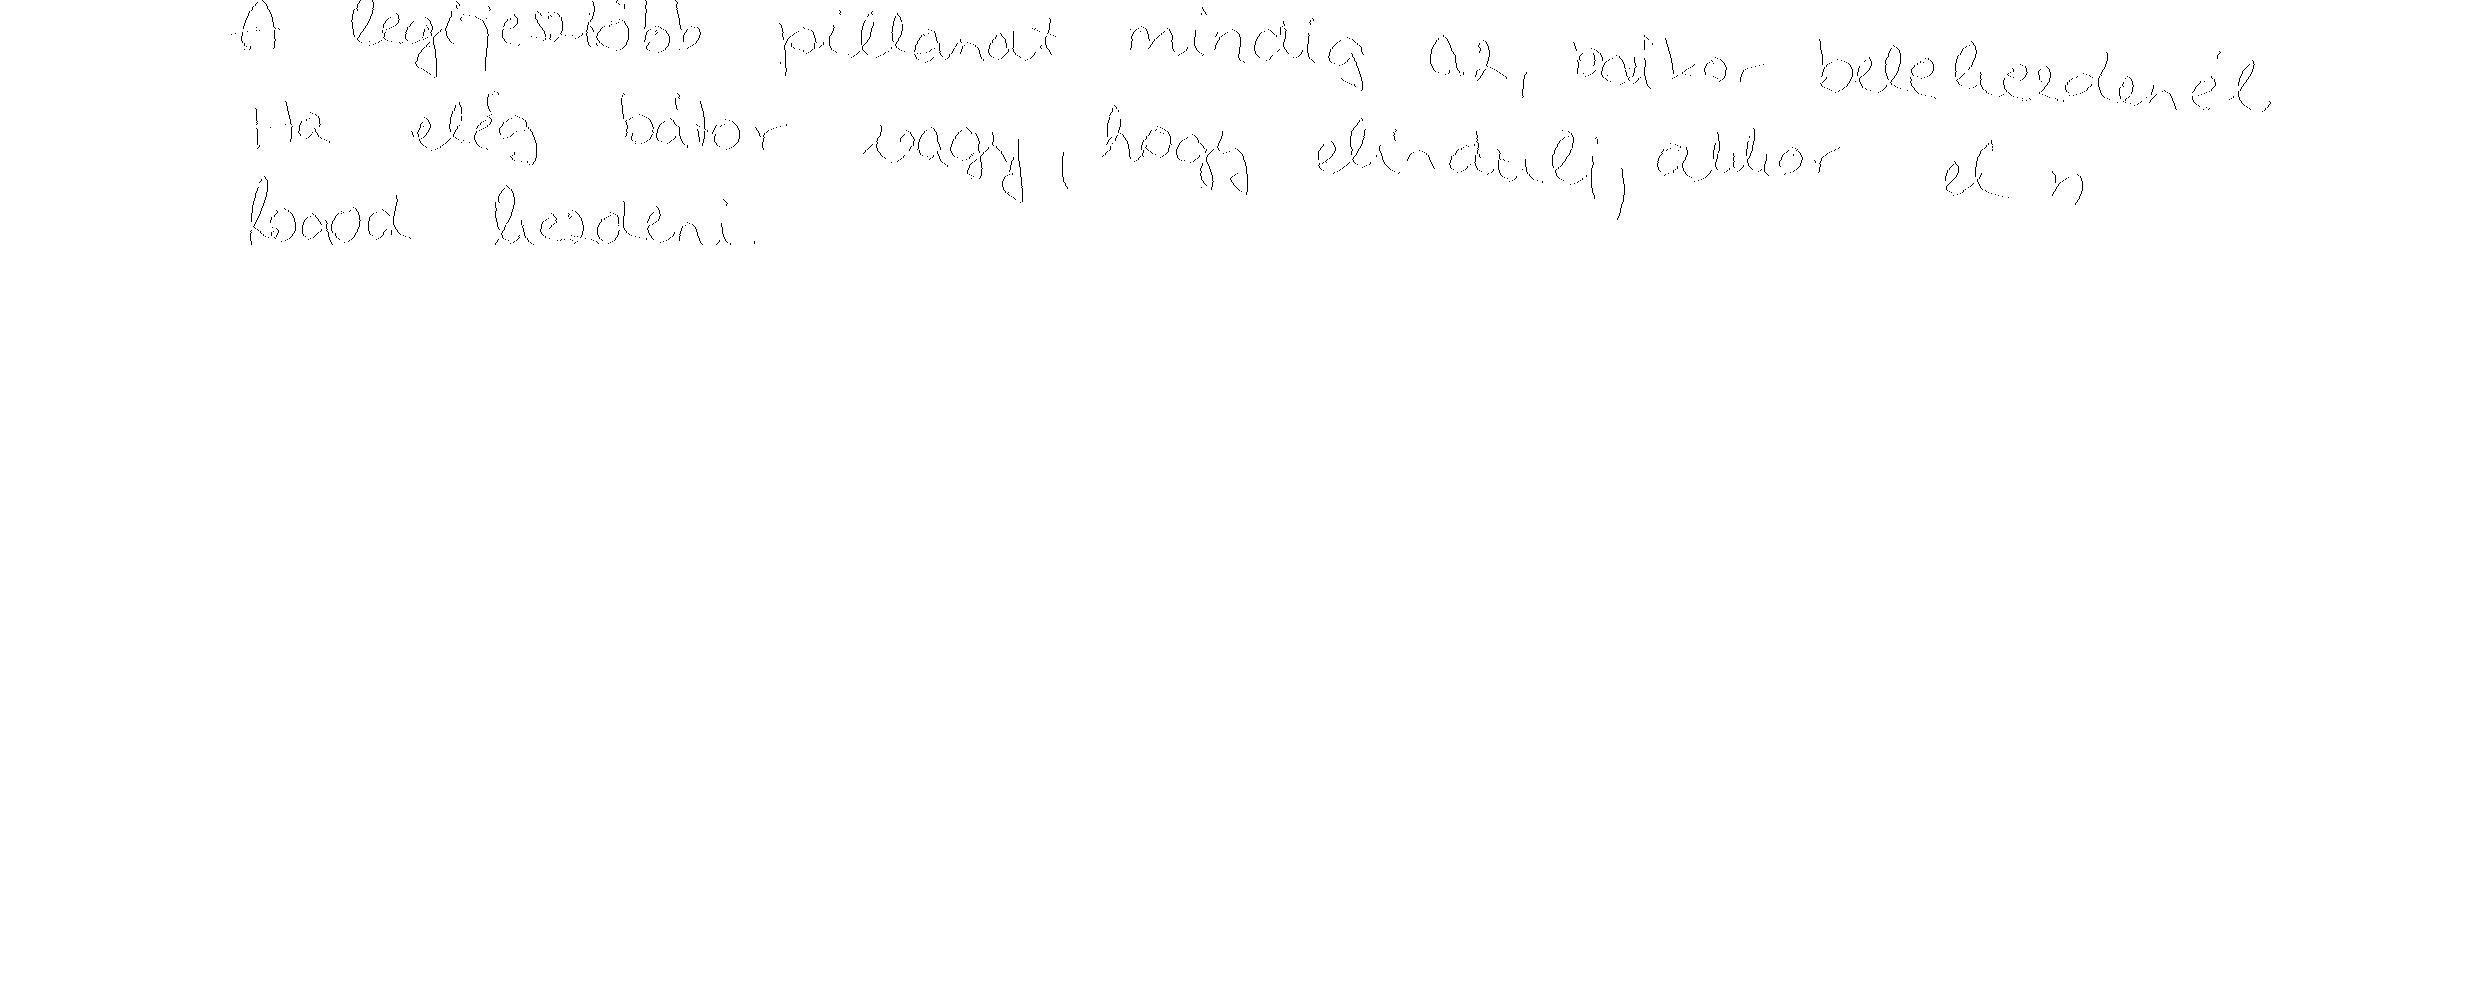 A legijesztőbb pillanat mindig az, mikor belekezdenél.
Ha elég bátor vagy, hogy elindulj, akkor el
fogod kezdeni.